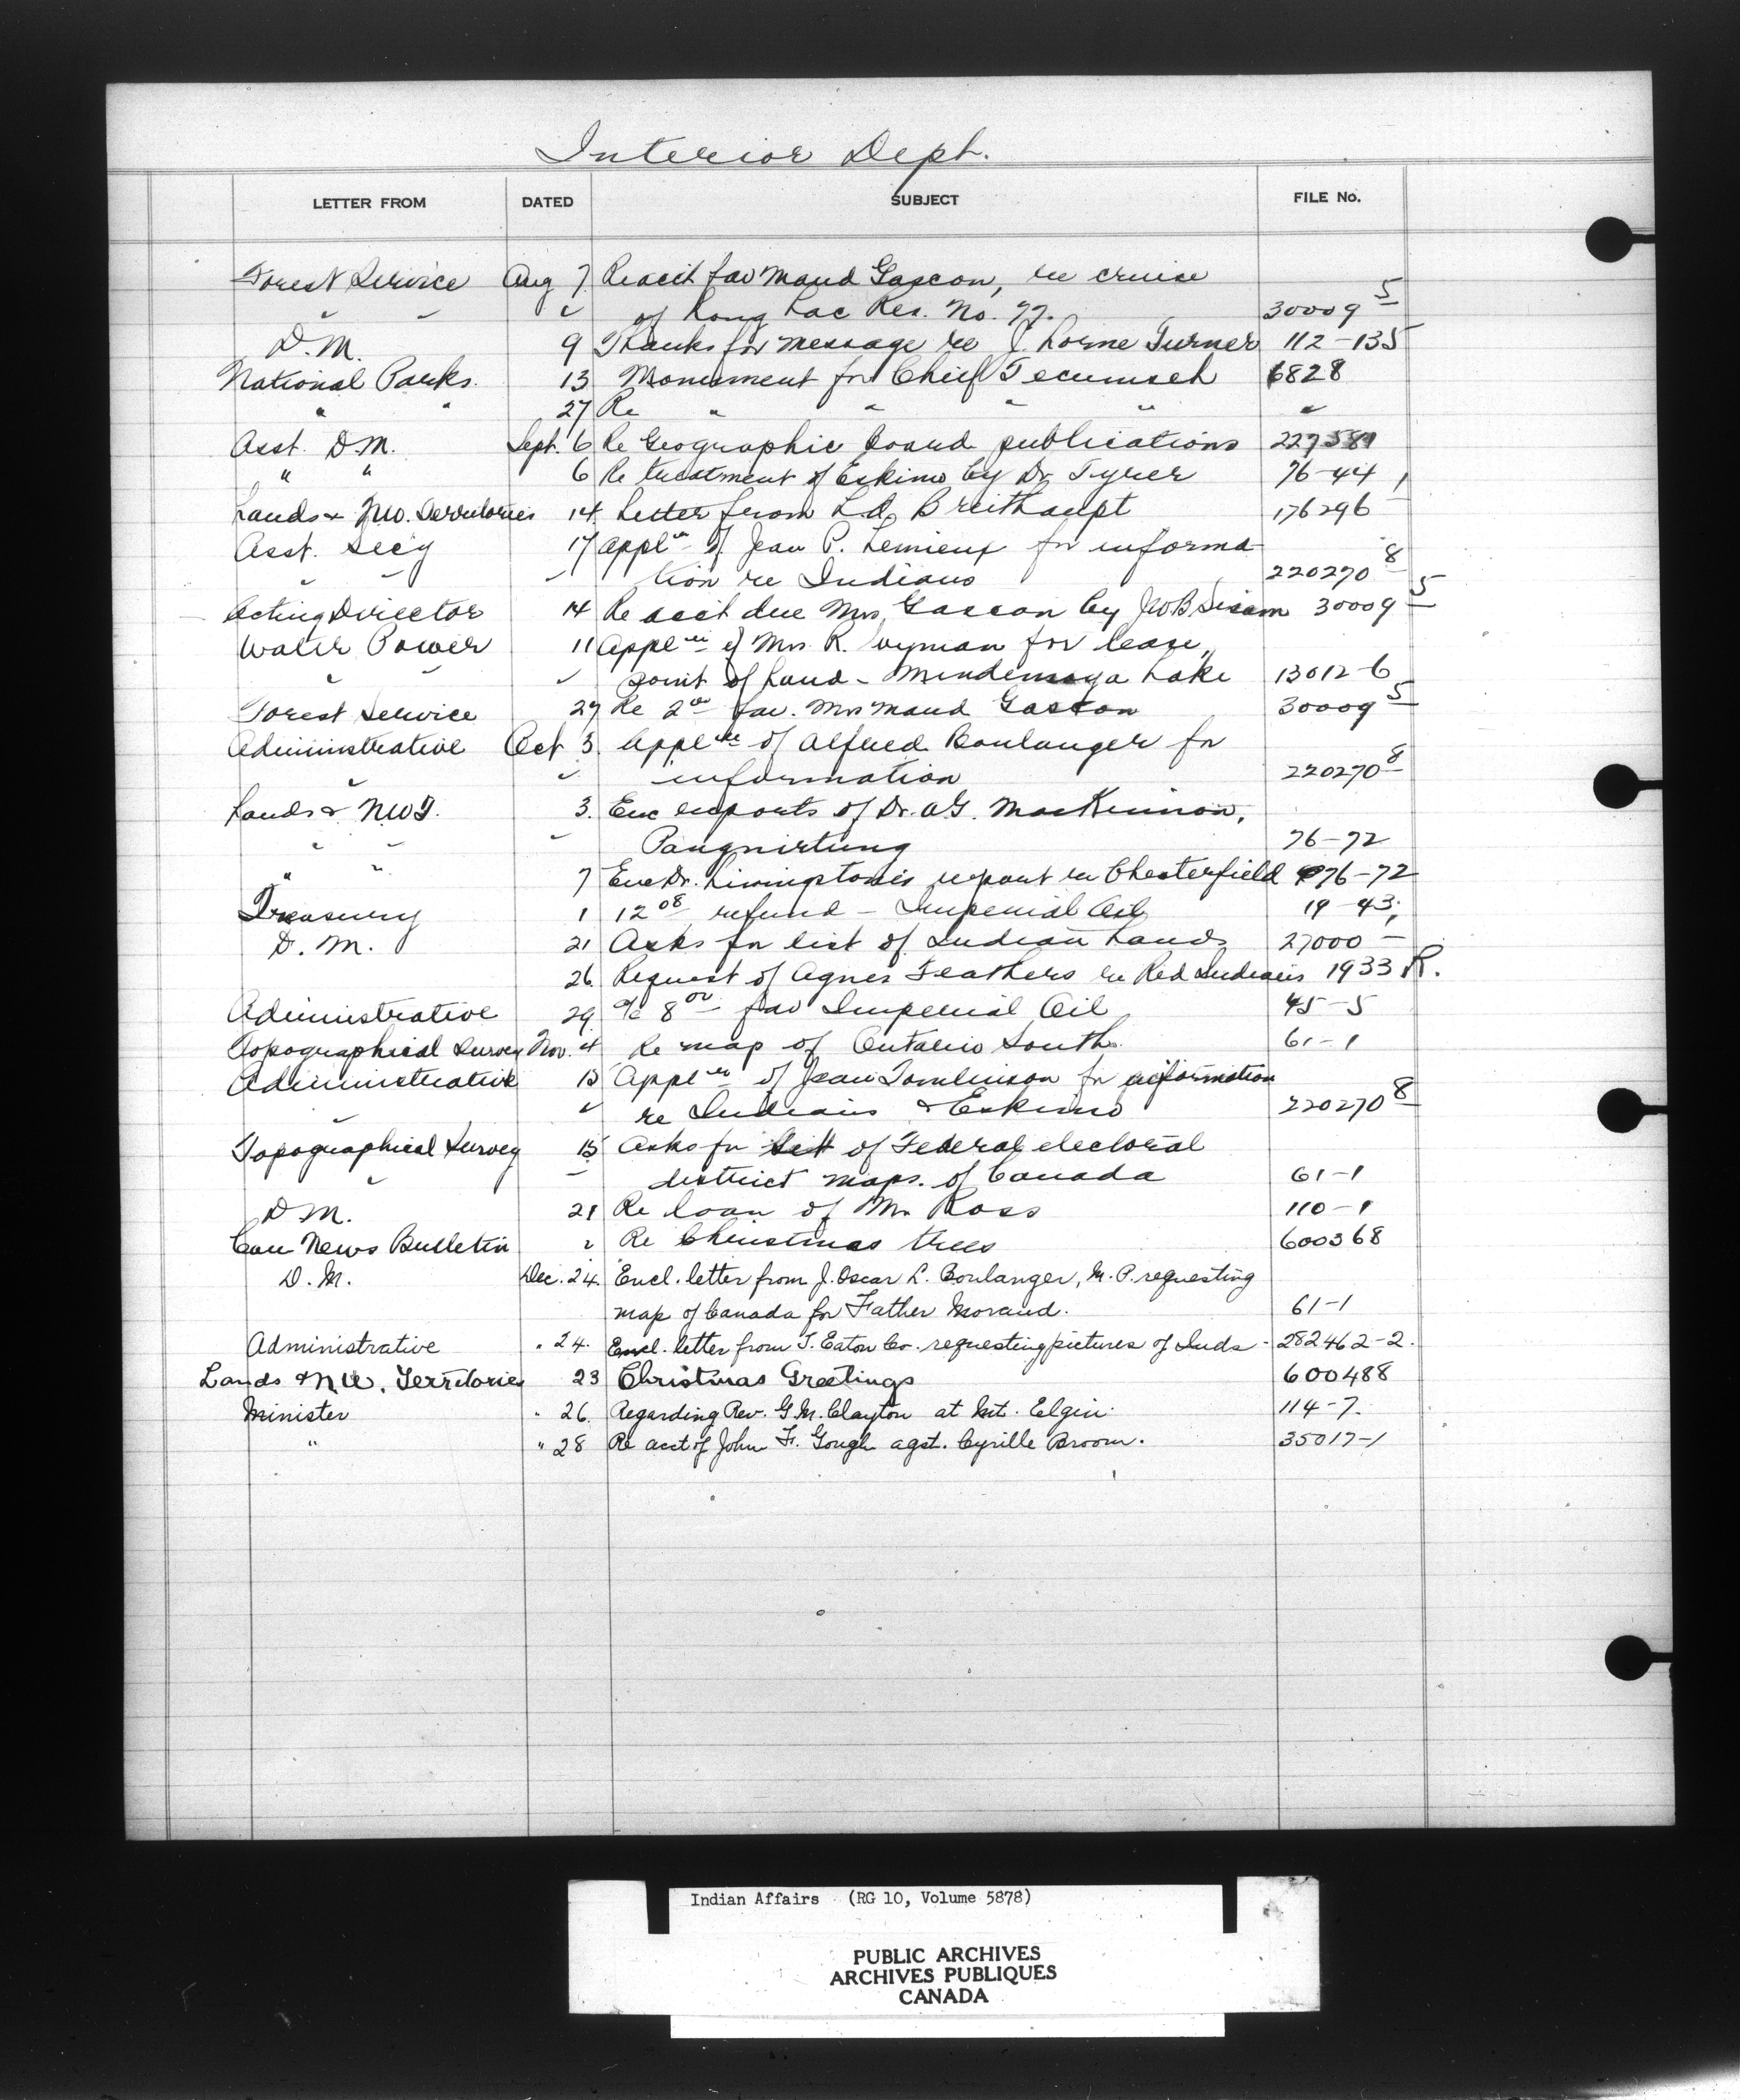 Interior Dept.
LETTER FROM DATED SUBJECT FILE No.
Forest Service Aug 7 Re acct fav Maud Gascon, re cruise
" " " of Long Lac Res. No. 77. 30009 5
D.M. 9 Thanks for message re J. Lorne Turner 112-135
National Parks 13 Monument for Chief Tecumseh 6828
" " 27 Re " " " " "
Asst. D.M. Sept. 6 Re Geographic Board publications 227581
" " 6 Re treatment of Eskimo by Dr Tyrer 76-44
Lands & NW. Territories 14 Letter from L.O. Breithaupt 176296
Asst. Secy 17 Appl'n of Jean P. Lemieux for informa-
" " " tion re Indians 220270 8
Acting Director 14 Re acct due Mrs Gascon by JWB Sisam 30009 5
Water Power 11 Appl'n of Mrs R. Wyman for lease,
" " " point of land - Mindemoya Lake 13012-6
Forest Service 27 Re fav. Mrs Maud Gascon 30009 5
Administrative Oct 3. Appl'n of Alfred Boulanger for
" " information 220270 8
Lands & N.W.T. 3. Enc reports of Dr. A.G. MacKinnon,
" " " Pangnirtung 76-72
" " 7 Enc Dr. Livingstone's report re Chesterfield 76-72
Treasury 1 12 08 refund - Imperial Oil 19-43
D.M. 21 Asks for list of Indian Lands 27000 -
26 Request of Agnes Feathers re Red Indians 1933 R.
Administrative 29 a/c 8 00 fav Imperial Oil 45-5
Topographical Survey Nov. 4 Re map of Ontario South. 61-1
Administrative 13 Appl'n of Jean Tomlinson for information
" " re Indians & Eskimo 220270 8
Topographical Survey 15 Asks for set of Federal electoral
" " district maps. of Canada 61-1
D M. 21 Re loan of Mr Ross 110-1
Can News Bulletin " Re Christmas trees 600368
D.M. Dec. 24. Encl. letter from J. Oscar L. Boulanger, M.P. requesting
map of Canada for Father Morand. 61-1
Administrative " 24. Encl. letter from T. Eaton Co. requesting pictures of Inds - 282462-2.
Lands & N.W. Territories 23 Christmas Greetings 600488
Minister " 26. Regarding Rev. G.M. Clayton at Mt. Elgin. 114-7.
" " 28 Re acct of John F. Gough agst. Cyrille Broom. 35017-1
Indian Affairs (RG 10, Volume 5878)
PUBLIC ARCHIVES
ARCHIVES PUBLIQUES
CANADA